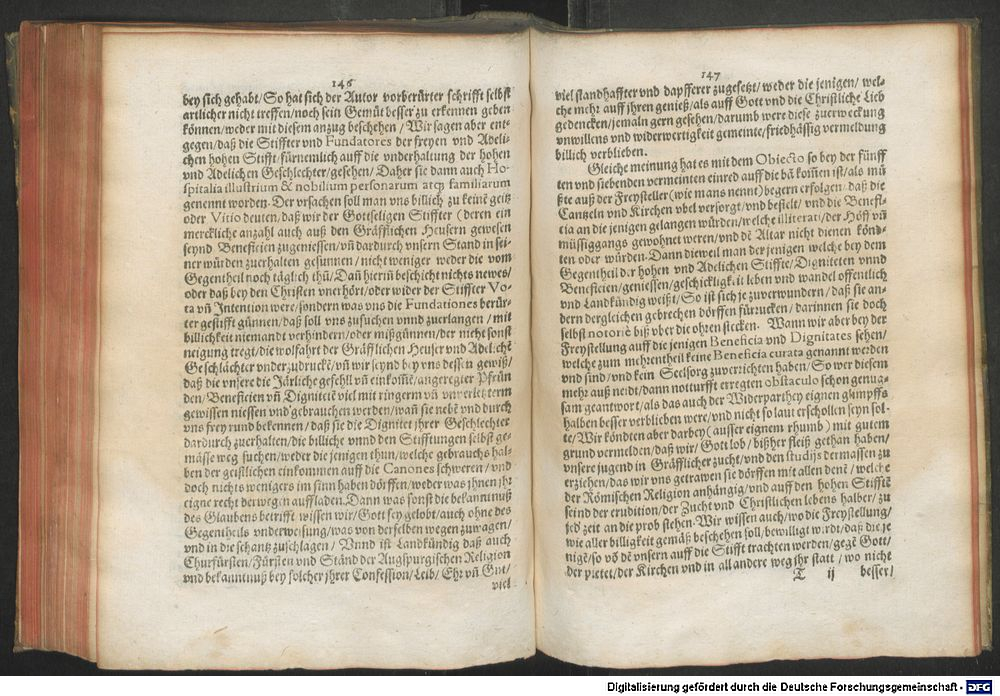 146
bey sich gehabt/So hat sich der Autor vorberürter schrifft selbst
artlicher nicht treffen/noch sein Gemüt besser zu erkennen geben
können/weder mit diesem anzug beschehen/Wir sagen aber ent-
gegen/daß die Stiffter vnd Fundatores der freyen vnd Adeli-
chen hohen Stifft/fürnemlich auff die vnderhaltung der hohen
vnd Adelichen Geschlechter/gesehen/Daher sie dann auch Ho-
spitalia illustrium & nobilium personarum atq; familiarum
genennt worden. Der vrsachen soll man vns billich zu keinē geitz
oder Vitio deuten/daß wir der Gottseligen Stiffter (deren ein
merckliche anzahl auch auß den Gräfflichen Heusern gewesen
seynd) Beneficien zugeniessen/vñ dardurch vnsern Stand in sei-
ner würden zuerhalten gesunnen/nicht weniger weder die vom
Gegentheil noch täglich thũ/Dañ hieriñ beschicht nichts newes/
oder daß bey den Christen vnerhört/oder wider der Stiffter Vo-
ta vñ Intention were/sondern was vns die Fundationes berür-
ter gestifft günnen/daß soll vns zusuchen vnnd zuerlangen/mit
billichkeit niemandt verhindern/oder mißgünnen/der nicht sonst
neigung tregt/die wolfahrt der Gräfflichen Heuser vnd Adelichē
Geschlächter vnderzudruckē/vñ wir seynd bey vns dessen gewiß/
daß die vnsere die Järliche gefell vñ einkomē/angeregter Pfrün
den/Beneficien vñ Digniteiē viel mit ringerm vñ vnverletzterm
gewissen niessen vnd gebrauchen werden/wañ sie nebē vnd durch
vns frey rund bekennen/daß sie die Dignitet jhrer Geschlechter
dardurch zuerhalten/die billiche vnnd den Stifftungen selbst ge-
mässe weg suchen/weder die jenigen thun/welche gebrauchs hal-
ben der geistlichen einkommen auff die Canones schweren/vnd
doch nichts wenigers im sinn haben dörffen/weder was jhnen jhr
eigne recht derwegen aufflåden. Dann was sonst die bekanntnuß
des Glaubens betrifft/wissen wir/Gott sey gelobt/auch ohne des
Gegentheils vnderweisung/was von derselben wegen zuwagen/
vnd in die schantz zuschlagen/Vnnd ist Landkündig daß auch
Churfürsten/Fürsten vnd Ständ der Augspurgischen Religion
vnd bekanntnuß bey solcher jhrer Confession/Leib/Ehr vñ Gut/
viel
147
viel standhaffter vnd dapfferer zugesetzt/weder die jenigen/wel-
che mehr auff jhren genieß/als auff Gott vnd die Christliche Lieb
gedencken/jemaln gern gesehen/darumb were diese zuerweckung
vnwillens vnd widerwertigkeit gemeinte/friedhässig vermeldung
billich verblieben.
Gleiche meinung hat es mit dem Obiecto so bey der fünff
ten vnd siebenden vermeinten einred auff die bā kom̃en ist/als mü
ßte auß der Freysteller (wie mans nennt) begern erfolgen/daß die
Cantzeln vnd Kirchen vbel versorgt/vnd bestelt/vnd die Benefi-
cia an die jenigen gelangen würden/welche illiterati/der Höff vñ
müssiggangs gewohnet weren/vnd dē Altar nicht dienen könd-
ten oder würden. Dann dieweil man der jenigen welche bey dem
Gegentheil der hohen vnd Adelichen Stiffte/Digniteten vnnd
Beneficien/geniessen/geschickligkeit leben vnd wandel offentlich
vnd Landkündig weißt/So ist sich je zuverwundern/daß sie an-
dern dergleichen gebrechen dörffen fürrucken/darinnen sie doch
selbst notoriè biß vber die ohren stecken. Wann wir aber bey der
Freystellung auff die jenigen Beneficia vnd Dignitates sehen/
welche zum mehrentheil keine Beneficia curata genannt werden
vnd sind/vnd kein Seelsorg zuverrichten haben/So wer diesem
mehr auß neidt/dann notturfft erregten obstaculo schon genug-
sam geantwort/als das auch der Widerparthey eignen glimpffs
halben besser verblieben were/vnd nicht so laut erschollen seyn sol-
te/Wir köndten aber darbey (ausser eignem rhumb) mit gutem
grund vermelden/daß wir/Gott lob/bißher fleiß gethan haben/
vnsere jugend in Gräfflicher zucht/vnd den studijs dermassen zu
erziehen/das wir vns getrawen sie dörffen mit allen denē/welche
der Römischen Religion anhängig/vnd auff den hohen Stifftē
seind der erudition/der Zucht vnd Christlichen lebens halber/zu
jedē zeit an die prob stehen. Wir wissen auch/wo die Freystellung/
wie aller billigkeit gemäß beschehen soll/bewilligt wordt/daß die je
nigē/so võ dē vnsern auff die Stifft trachten werden/gegē Gott/
der pietet/der Kirchen vnd in all andere weg jhr statt/wo nicht
T ij besser/
Digitalisierung gefördert durch die Deutsche Forschungsgemeinschaft - DFG